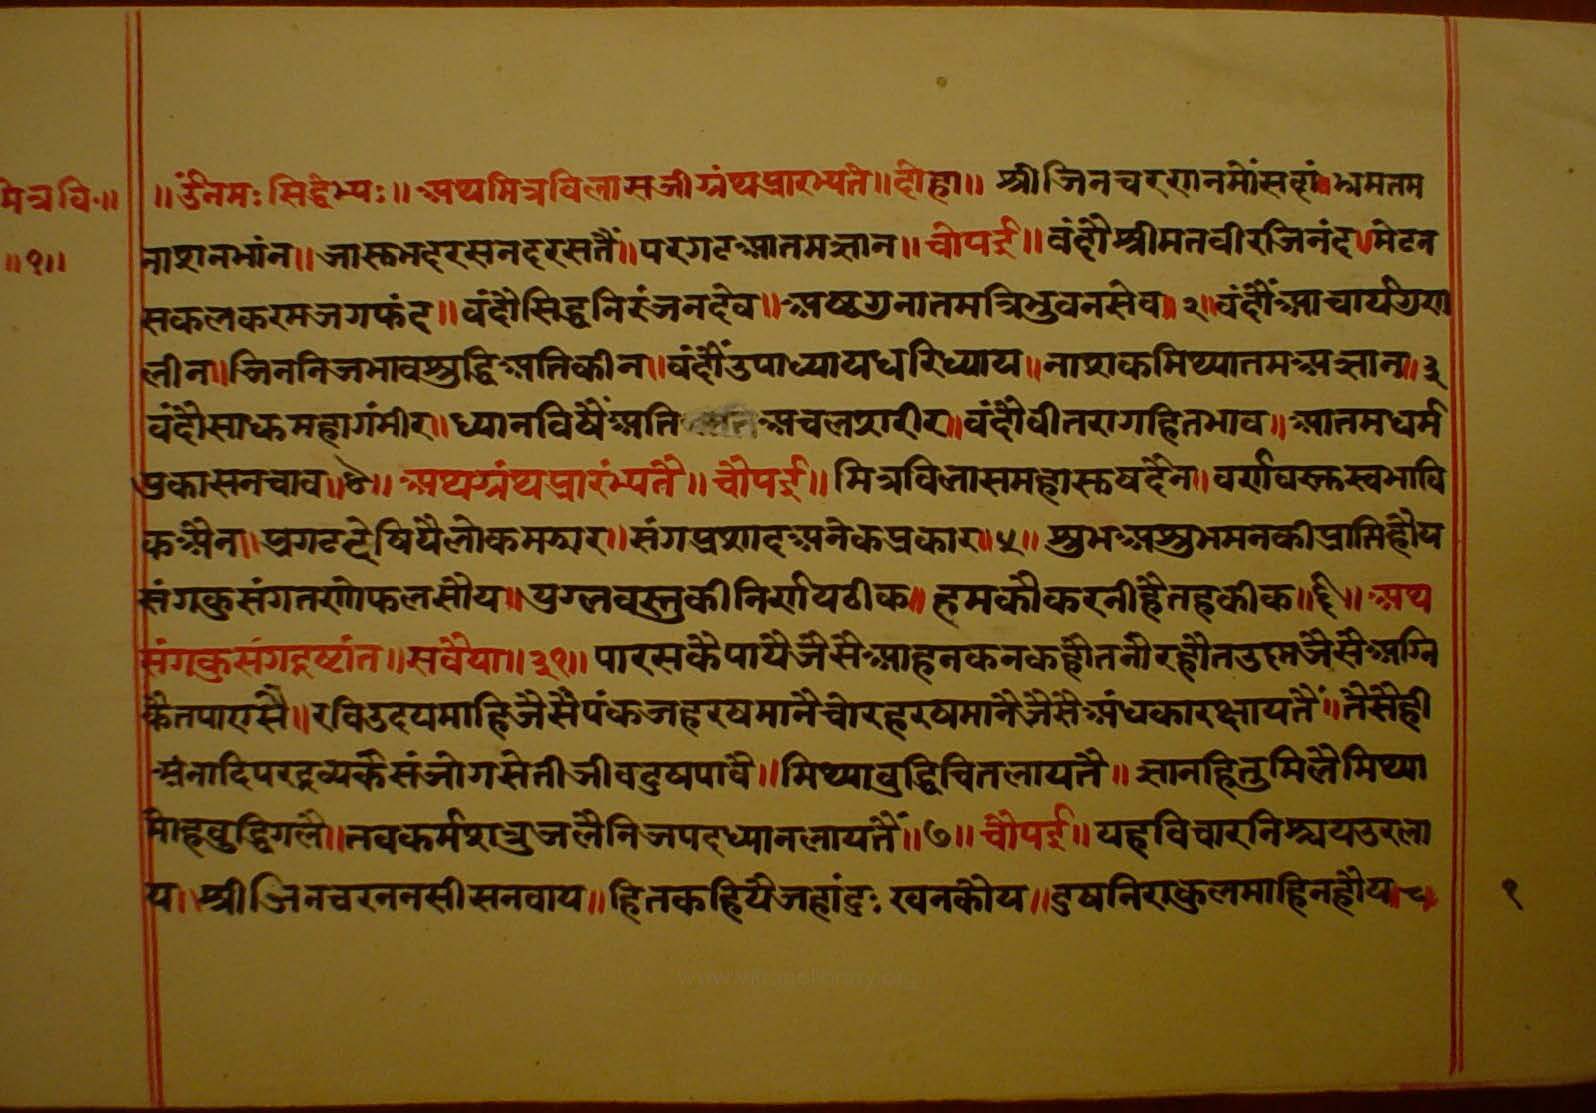 मित्रवि॰॥
॥१॥
॥ उंनमः सिद्धेभ्यः॥ अथमित्रविलासजीग्रंथप्रारभ्यते॥दोहा॥ श्रीजिनचरणनमोंसदां॥भ्रमतम
नाशनभांन॥जासकमदरसनदरसतैं॥परगटआतमज्ञान॥चौपई॥वंदौश्रीमतवीरजिनंद॥मेटन
सकलकरमजगफंद॥वंदौसिद्धनिरंजनदेव॥अष्टगुनातमत्रिभुवनसेव॥२॥वंदौंआचार्यगुण
लीन॥जिननिजभावशुद्धिअतिकीन॥वंदौंउपाध्यायधरिध्याय॥नाशकमिथ्यातमअज्ञान॥३
वंदौसाधमहागंभीर॥ध्यानविषैंअति अचलशरीर॥वंदौवीतरागहितभाव॥आतमधर्म
प्रकासनचाव॥४॥ अथग्रंथप्रारंभ्यतै॥ चौपई॥मित्रविलासमहासुषदैन॥वर्णवस्तुस्वभावि
कअैन॥प्रगटदेषियैलोकमझार॥संगप्रशादअनेकप्रकार॥५॥ शुभअशुभमनकीप्राप्तिहौय
संगकुसंगतणोफलसौय॥पुग्लवस्तुकीनिर्णयठीक॥हमकौकरनीहैतहकीक॥६॥ अथ
संगकुसंगदृष्टांत॥सवैया॥३१॥ पारसकैपायैजैसैआहनकनकहौतनीरहौतउश्मजैसैअग्नि
कैतपाएसै॥रविउदयमाहिजैसैपंकजहरषमानैचोरहरषमानैजैसैअंधकारक्षायतैं॥तैसैही
अनादिपरद्रव्यकैसंजोगसेतीजीवदुषपावै॥मिथ्याबुद्धिचितलायतै॥ ज्ञानहितुमिलैमिथ्या
मोहबुद्धिगलै॥नवकर्मशत्रुजलैनिजपदध्यानलायतैं॥७॥ चौपई॥यहविचारनिश्चयउरला
य॥श्रीजिनचरननसीसनवाय॥हितकहियैजहांदुः खनकोय॥दुषनिराकुलमाहिनहौय॥८॥
१